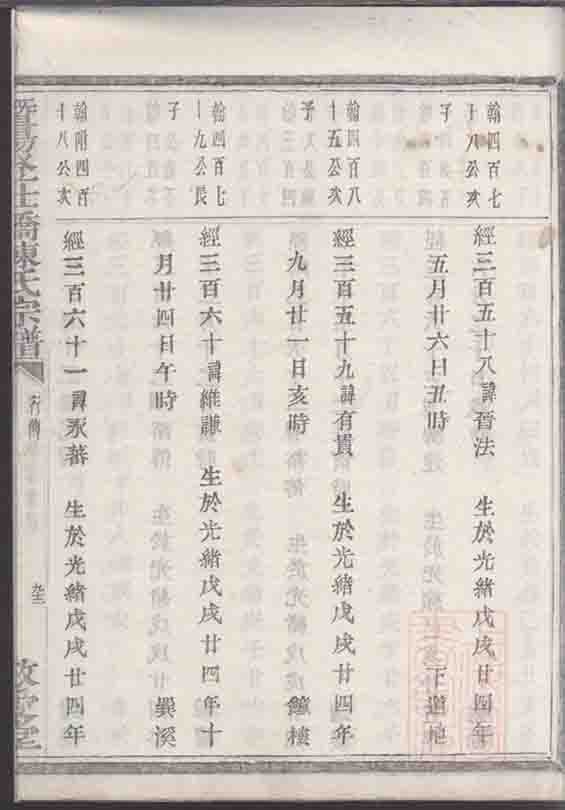 翰四百七
十八公次
子
經三百五十八諱晉法 生於光緒戊戌廿四年
五月廿六日丑時 下道地
翰四百八
十五公次
子
經三百五十九諱有貫 生於光緒戊戌廿四年
九月廿一日亥時 鐘樓
翰四百七
十九公長
子
經三百六十諱維謙 生於光緒戊戌廿四年十
月廿四日午時 巽溪
翰附四百
十八公次
經三百六十一諱永蕃 生於光緒戊戌廿四年
橋陳氏宗譜
行傳